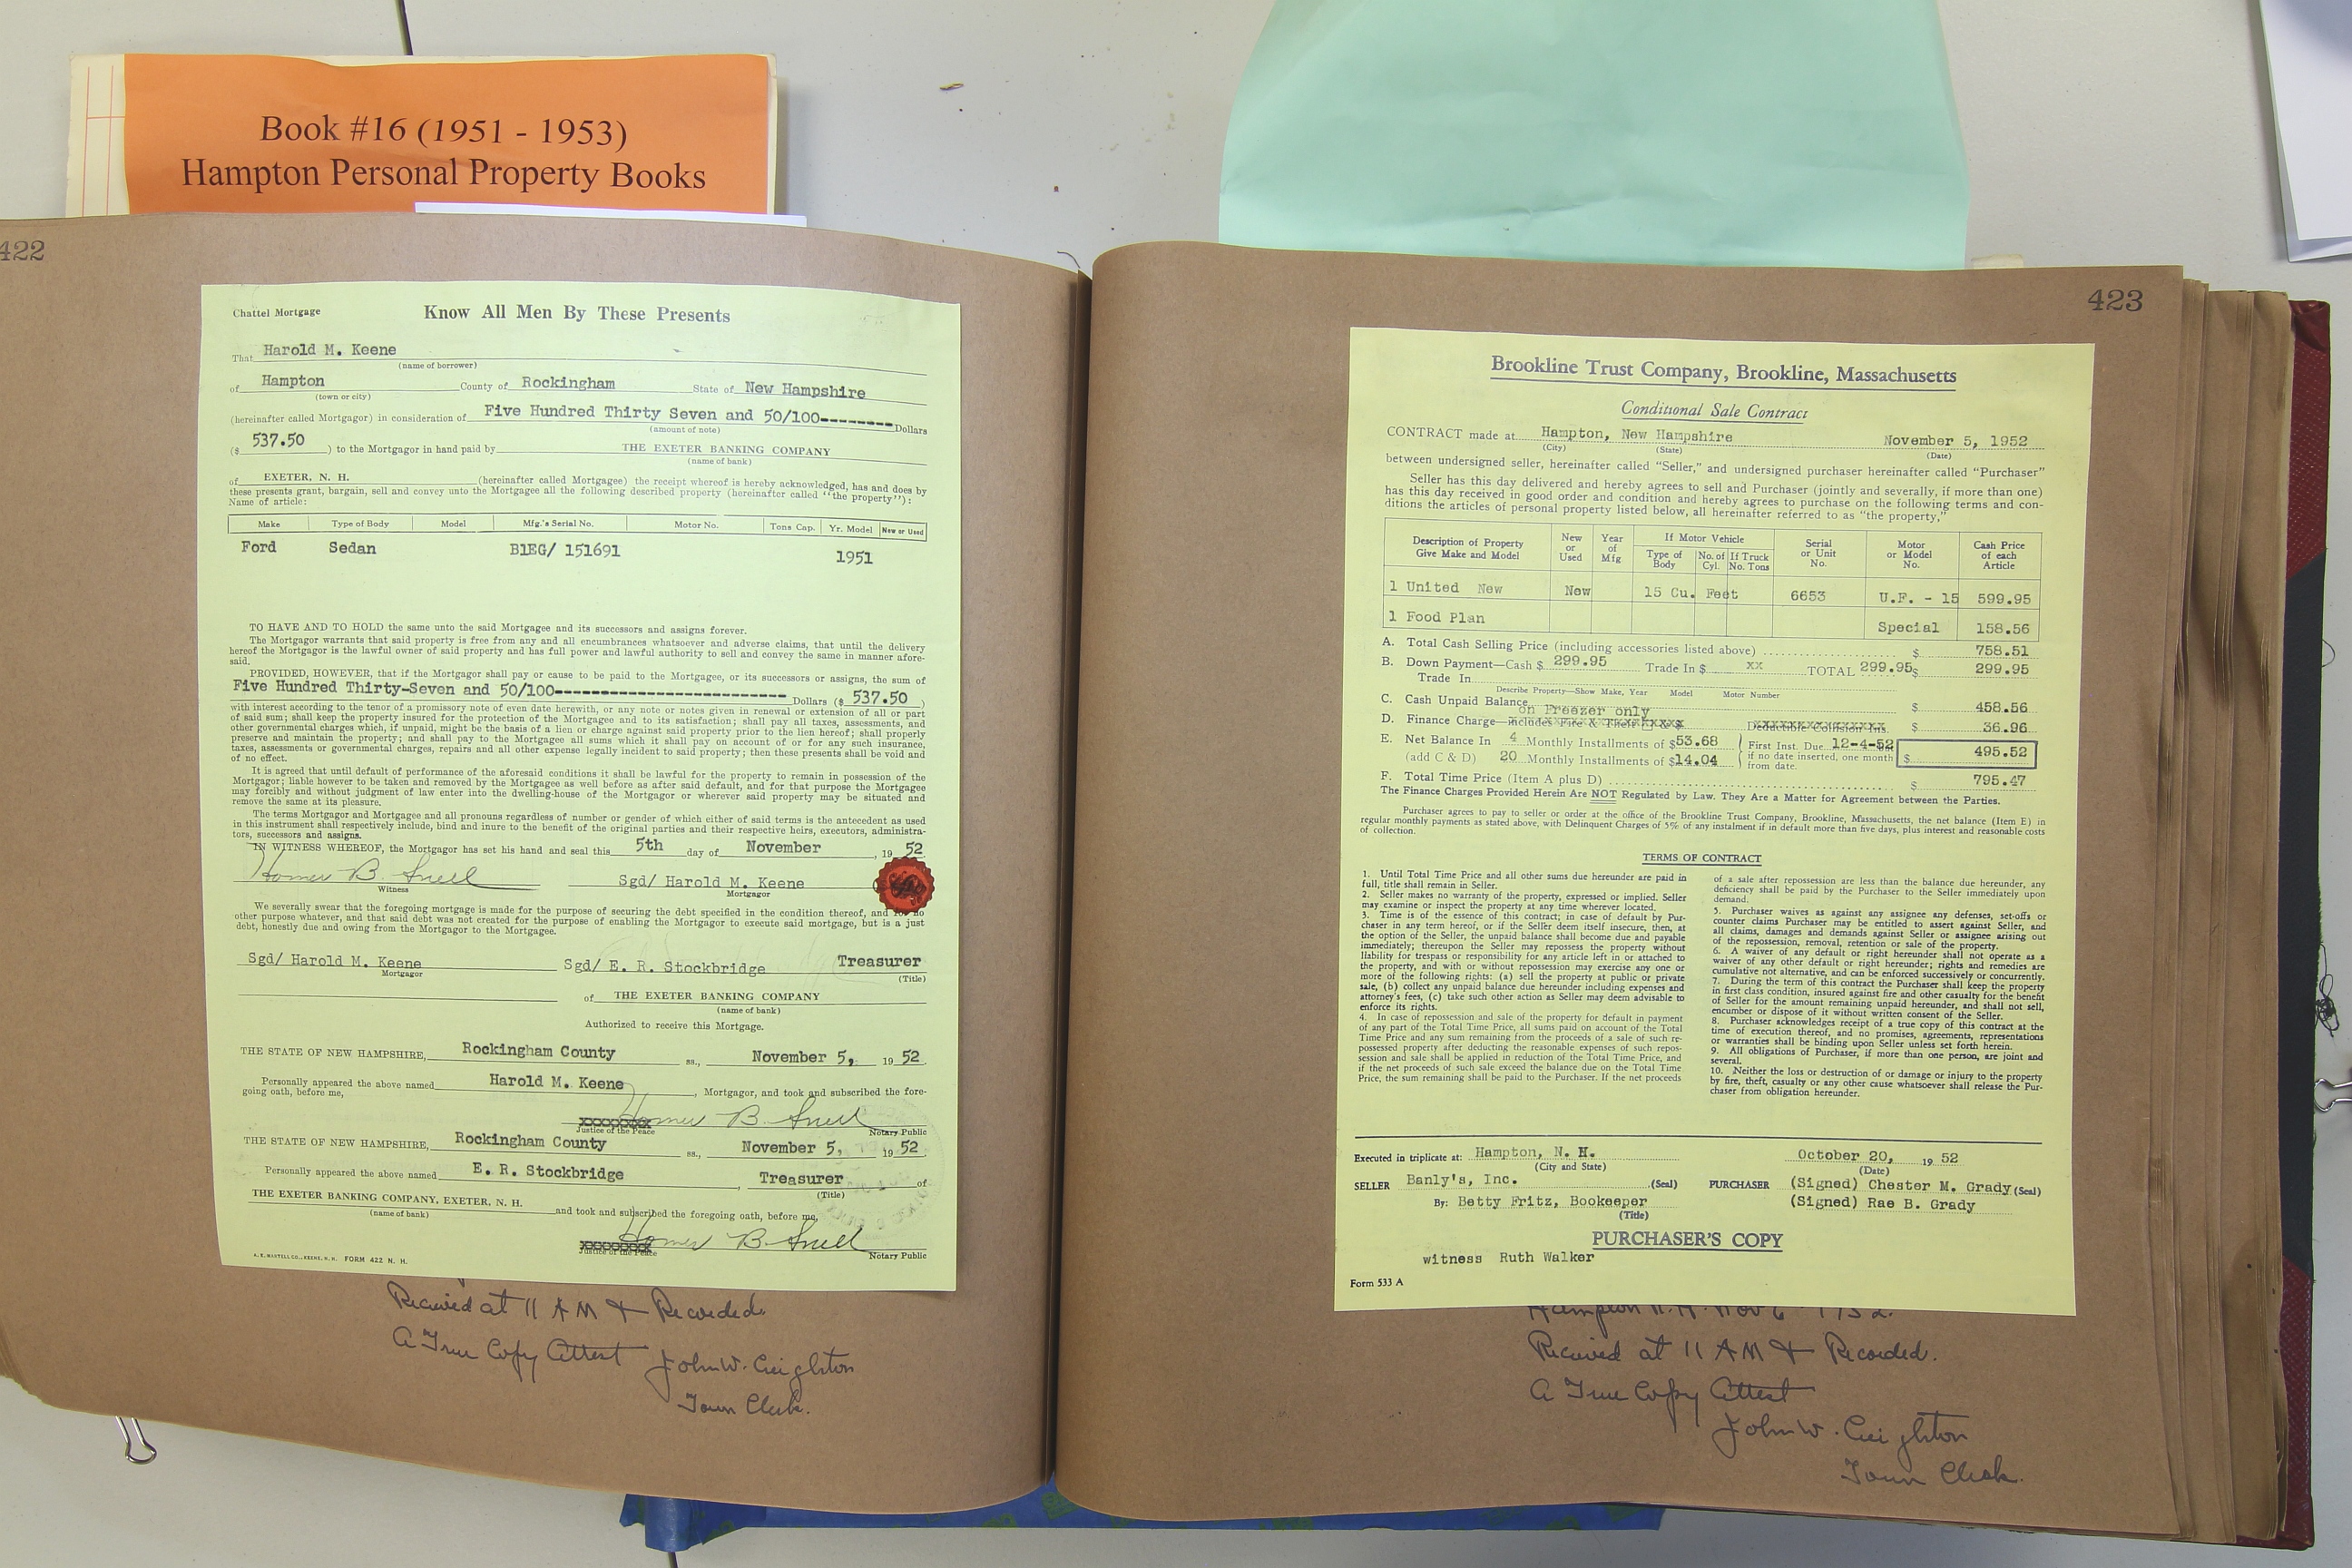 Book #16 (1951 - 1953)
Hampton Personal Property Books
422
Chattel Mortgage
Know All Men By These Presents
That Harold M. Keene
(name of borrower)
of Hampton County of Rockingham State of New Hampshire
(town or city)
(hereinafter called Mortgagor) in consideration of Five Hundred Thirty Seven and 50/100-------- Dollars
(amount of note)
($ 537.50 ) to the Mortgagor in hand paid by THE EXETER BANKING COMPANY
(name of bank)
of EXETER, N. H. (hereinafter called Mortgagee) the receipt whereof is hereby acknowledged, has and does by
these presents grant, bargain, sell and convey unto the Mortgagee all the following described property (hereinafter called "the property"):
Name of article:
Make Type of Body Model Mfg.'s Serial No. Motor No. Tons Cap. Yr. Model New or Used
Ford Sedan B1EG/ 151691 1951
TO HAVE AND TO HOLD the same unto the said Mortgagee and its successors and assigns forever.
The Mortgagor warrants that said property is free from any and all encumbrances whatsoever and adverse claims, that until the delivery
hereof the Mortgagor is the lawful owner of said property and has full power and lawful authority to sell and convey the same in manner afore-
said.
PROVIDED, HOWEVER, that if the Mortgagor shall pay or cause to be paid to the Mortgagee, or its successors or assigns, the sum of
Five Hundred Thirty-Seven and 50/100------------------------- Dollars ($ 537.50 )
with interest according to the tenor of a promissory note of even date herewith, or any note or notes given in renewal or extension of all or part
of said sum; shall keep the property insured for the protection of the Mortgagee and to its satisfaction; shall pay all taxes, assessments, and
other governmental charges which, if unpaid, might be the basis of a lien or charge against said property prior to the lien hereof; shall properly
preserve and maintain the property; and shall pay to the Mortgagee all sums which it shall pay on account of or for any such insurance,
taxes, assessments or governmental charges, repairs and all other expense legally incident to said property; then these presents shall be void and
of no effect.
It is agreed that until default of performance of the aforesaid conditions it shall be lawful for the property to remain in possession of the
Mortgagor; liable however to be taken and removed by the Mortgagee as well before as after said default, and for that purpose the Mortgagee
may forcibly and without judgment of law enter into the dwelling-house of the Mortgagor or wherever said property may be situated and
remove the same at its pleasure.
The terms Mortgagor and Mortgagee and all pronouns regardless of number or gender of which either of said terms is the antecedent as used
in this instrument shall respectively include, bind and inure to the benefit of the original parties and their respective heirs, executors, administra-
tors, successors and assigns.
IN WITNESS WHEREOF, the Mortgagor has set his hand and seal this 5th day of November , 19 52
Homer B. Snell Sgd/ Harold M. Keene
Witness Mortgagor
We severally swear that the foregoing mortgage is made for the purpose of securing the debt specified in the condition thereof, and for no
other purpose whatever, and that said debt was not created for the purpose of enabling the Mortgagor to execute said mortgage, but is a just
debt, honestly due and owing from the Mortgagor to the Mortgagee.
Sgd/ Harold M. Keene Sgd/ E. R. Stockbridge Treasurer
Mortgagor (Title)
of THE EXETER BANKING COMPANY
(name of bank)
Authorized to receive this Mortgage.
THE STATE OF NEW HAMPSHIRE, Rockingham County ss., November 5, 19 52
Personally appeared the above named Harold M. Keene , Mortgagor, and took and subscribed the fore-
going oath, before me,
xxxxxxxx Homer B. Snell
Justice of the Peace Notary Public
THE STATE OF NEW HAMPSHIRE, Rockingham County ss., November 5, 19 52
Personally appeared the above named E. R. Stockbridge , Treasurer of
(Title)
THE EXETER BANKING COMPANY, EXETER, N. H. and took and subscribed the foregoing oath, before me,
(name of bank)
xxxxxxxx Homer B. Snell
Justice of the Peace Notary Public
A. E. MARTELL CO., KEENE, N. H. FORM 422 N. H.
Received at 11 AM & Recorded.
A True Copy Attest John W. Creighton
Town Clerk.
423
Brookline Trust Company, Brookline, Massachusetts
Conditional Sale Contract
CONTRACT made at Hampton, New Hampshire November 5, 1952
(City) (State) (Date)
between undersigned seller, hereinafter called "Seller," and undersigned purchaser hereinafter called "Purchaser"
Seller has this day delivered and hereby agrees to sell and Purchaser (jointly and severally, if more than one)
has this day received in good order and condition and hereby agrees to purchase on the following terms and con-
ditions the articles of personal property listed below, all hereinafter referred to as "the property,"
Description of Property Give Make and Model New or Used Year of Mfg If Motor Vehicle Type of Body No. of Cyl. If Truck No. Tons Serial or Unit No. Motor or Model No. Cash Price of each Article
1 United New New 15 Cu. Feet 6653 U.F. - 15 599.95
1 Food Plan Special 158.56
A. Total Cash Selling Price (including accessories listed above) $ 758.51
B. Down Payment—Cash $ 299.95 Trade In $ xx TOTAL 299.95 $ 299.95
Trade In
Describe Property—Show Make, Year Model Motor Number
C. Cash Unpaid Balance $ 458.56
on Freezer only
D. Finance Charge—includes Fire & Theft $ Deductible Collision Ins. $ 36.96
E. Net Balance In 4 Monthly Installments of $53.68 First Inst. Due 12-4-52 $ 495.52
(add C & D) 20 Monthly Installments of $14.04 if no date inserted, one month from date.
F. Total Time Price (Item A plus D) $ 795.47
The Finance Charges Provided Herein Are NOT Regulated by Law. They Are a Matter for Agreement between the Parties.
Purchaser agrees to pay to seller or order at the office of the Brookline Trust Company, Brookline, Massachusetts, the net balance (Item E) in
regular monthly payments as stated above, with Delinquent Charges of 5% of any instalment if in default more than five days, plus interest and reasonable costs
of collection.
TERMS OF CONTRACT
1. Until Total Time Price and all other sums due hereunder are paid in
full, title shall remain in Seller.
2. Seller makes no warranty of the property, expressed or implied. Seller
may examine or inspect the property at any time wherever located.
3. Time is of the essence of this contract; in case of default by Pur-
chaser in any term hereof, or if the Seller deem itself insecure, then, at
the option of the Seller, the unpaid balance shall become due and payable
immediately; thereupon the Seller may repossess the property without
liability for trespass or responsibility for any article left in or attached to
the property, and with or without repossession may exercise any one or
more of the following rights: (a) sell the property at public or private
sale, (b) collect any unpaid balance due hereunder including expenses and
attorney's fees, (c) take such other action as Seller may deem advisable to
enforce its rights.
4. In case of repossession and sale of the property for default in payment
of any part of the Total Time Price, all sums paid on account of the Total
Time Price and any sum remaining from the proceeds of a sale of such re-
possessed property after deducting the reasonable expenses of such repos-
session and sale shall be applied in reduction of the Total Time Price, and
if the net proceeds of such sale exceed the balance due on the Total Time
Price, the sum remaining shall be paid to the Purchaser. If the net proceeds
of a sale after repossession are less than the balance due hereunder, any
deficiency shall be paid by the Purchaser to the Seller immediately upon
demand.
5. Purchaser waives as against any assignee any defenses, set-offs or
counter claims Purchaser may be entitled to assert against Seller, and
all claims, damages and demands against Seller or assignee arising out
of the repossession, removal, retention or sale of the property.
6. A waiver of any default or right hereunder shall not operate as a
waiver of any other default or right hereunder; rights and remedies are
cumulative not alternative, and can be enforced successively or concurrently.
7. During the term of this contract the Purchaser shall keep the property
in first class condition, insured against fire and other casualty for the benefit
of Seller for the amount remaining unpaid hereunder, and shall not sell,
encumber or dispose of it without written consent of the Seller.
8. Purchaser acknowledges receipt of a true copy of this contract at the
time of execution thereof, and no promises, agreements, representations
or warranties shall be binding upon Seller unless set forth herein.
9. All obligations of Purchaser, if more than one person, are joint and
several.
10. Neither the loss or destruction of or damage or injury to the property
by fire, theft, casualty or any other cause whatsoever shall release the Pur-
chaser from obligation hereunder.
Executed in triplicate at: Hampton, N. H. October 20, 19 52
(City and State) (Date)
SELLER Banly's, Inc. (Seal) PURCHASER (Signed) Chester M. Grady (Seal)
By: Betty Fritz, Bookeeper (Signed) Rae B. Grady
(Title)
PURCHASER'S COPY
witness Ruth Walker
Form 533 A
Hampton N.H. Nov 6 1952.
Received at 11 AM & Recorded.
A True Copy Attest
John W. Creighton
Town Clerk.